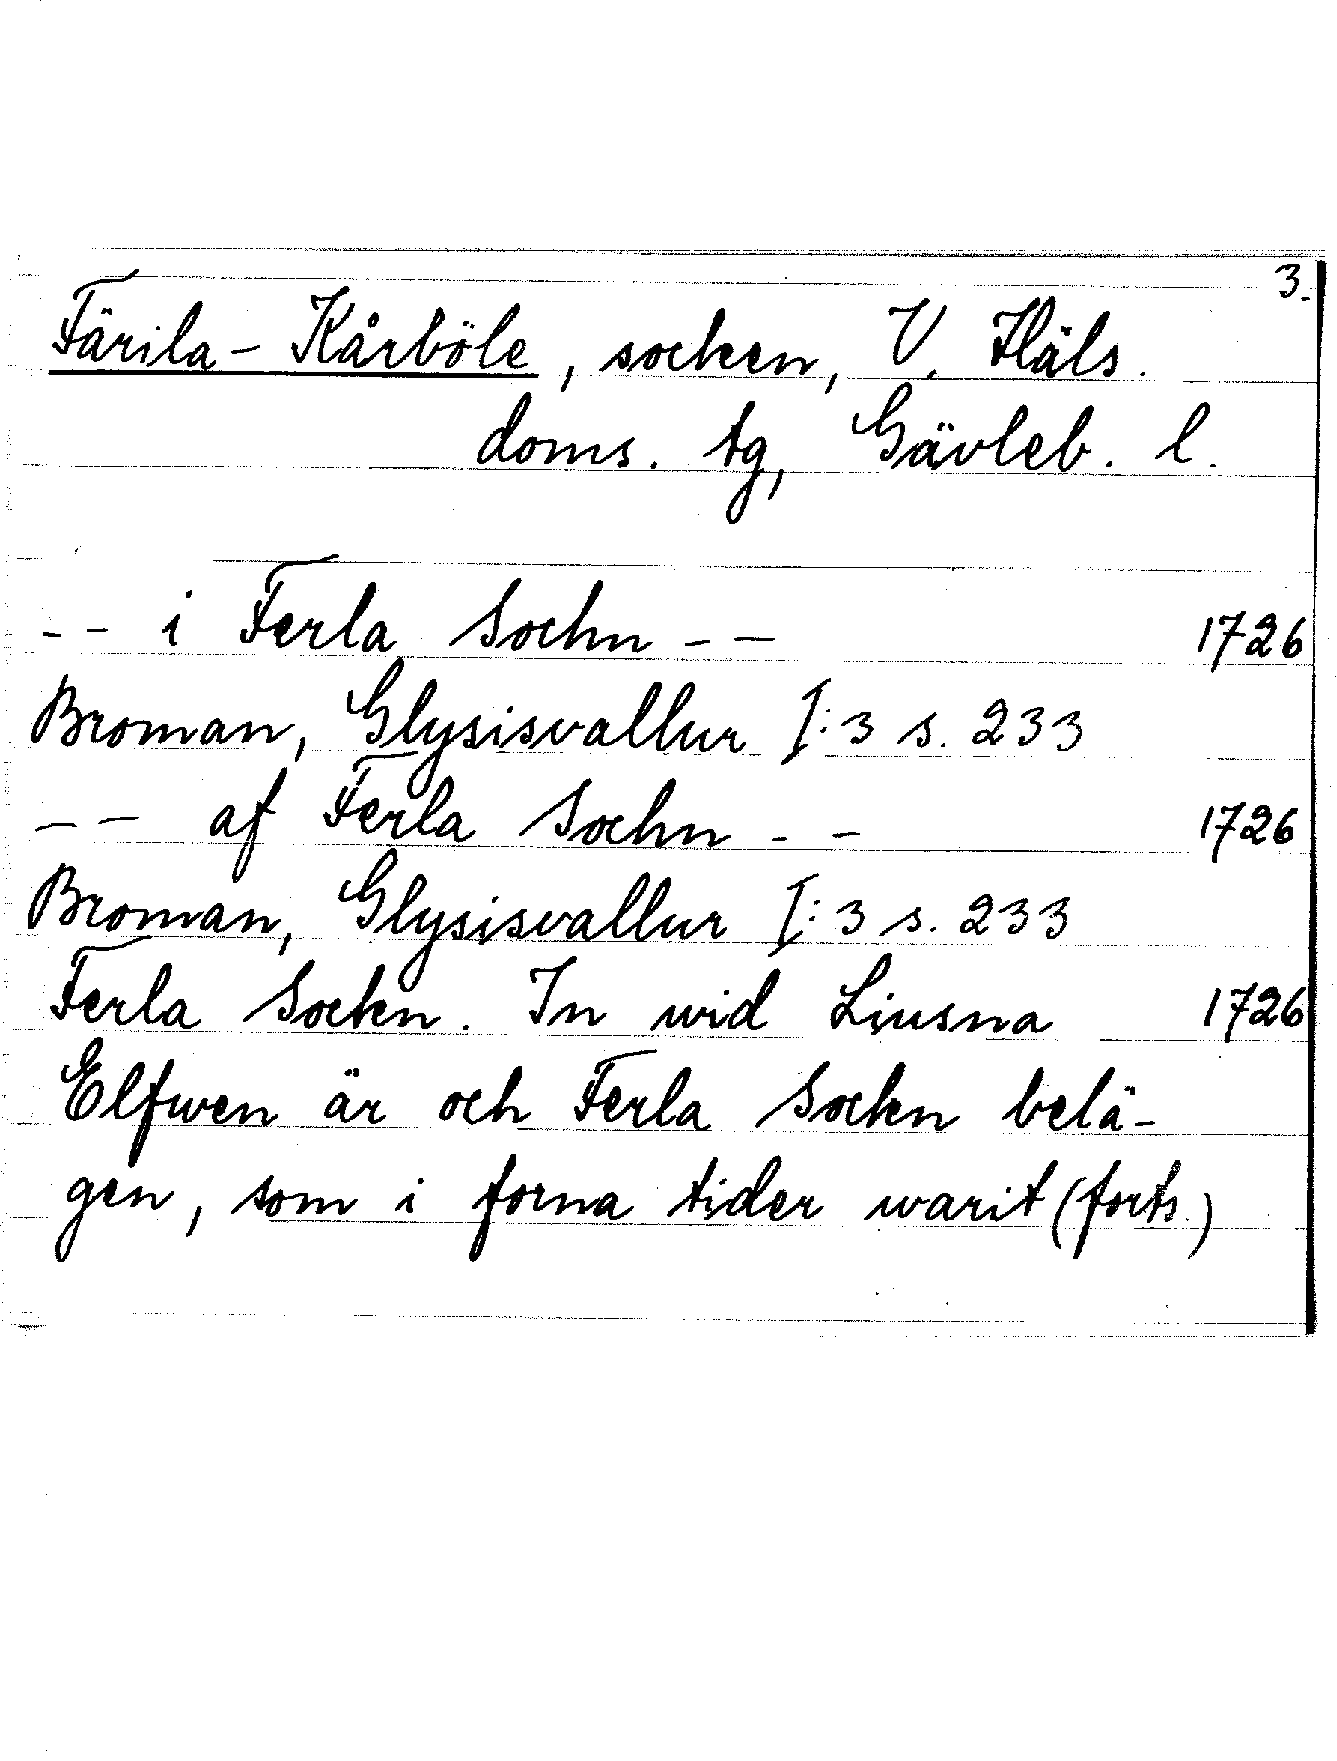 3.
Färila-Kårböle, socken, V. Häls.
doms. tg, Gävleb. l.
-- i Ferla Sochn -- 1726
Broman, Glysisvallur I:3 s. 233
-- af Ferla Sochn -- 1726
Broman, Glysisvallur I:3 s. 233
Ferla Sockn. In wid Liusna 1726
Elfwen är och Ferla Sockn belä-
gen, som i forna tider warit (forts.)